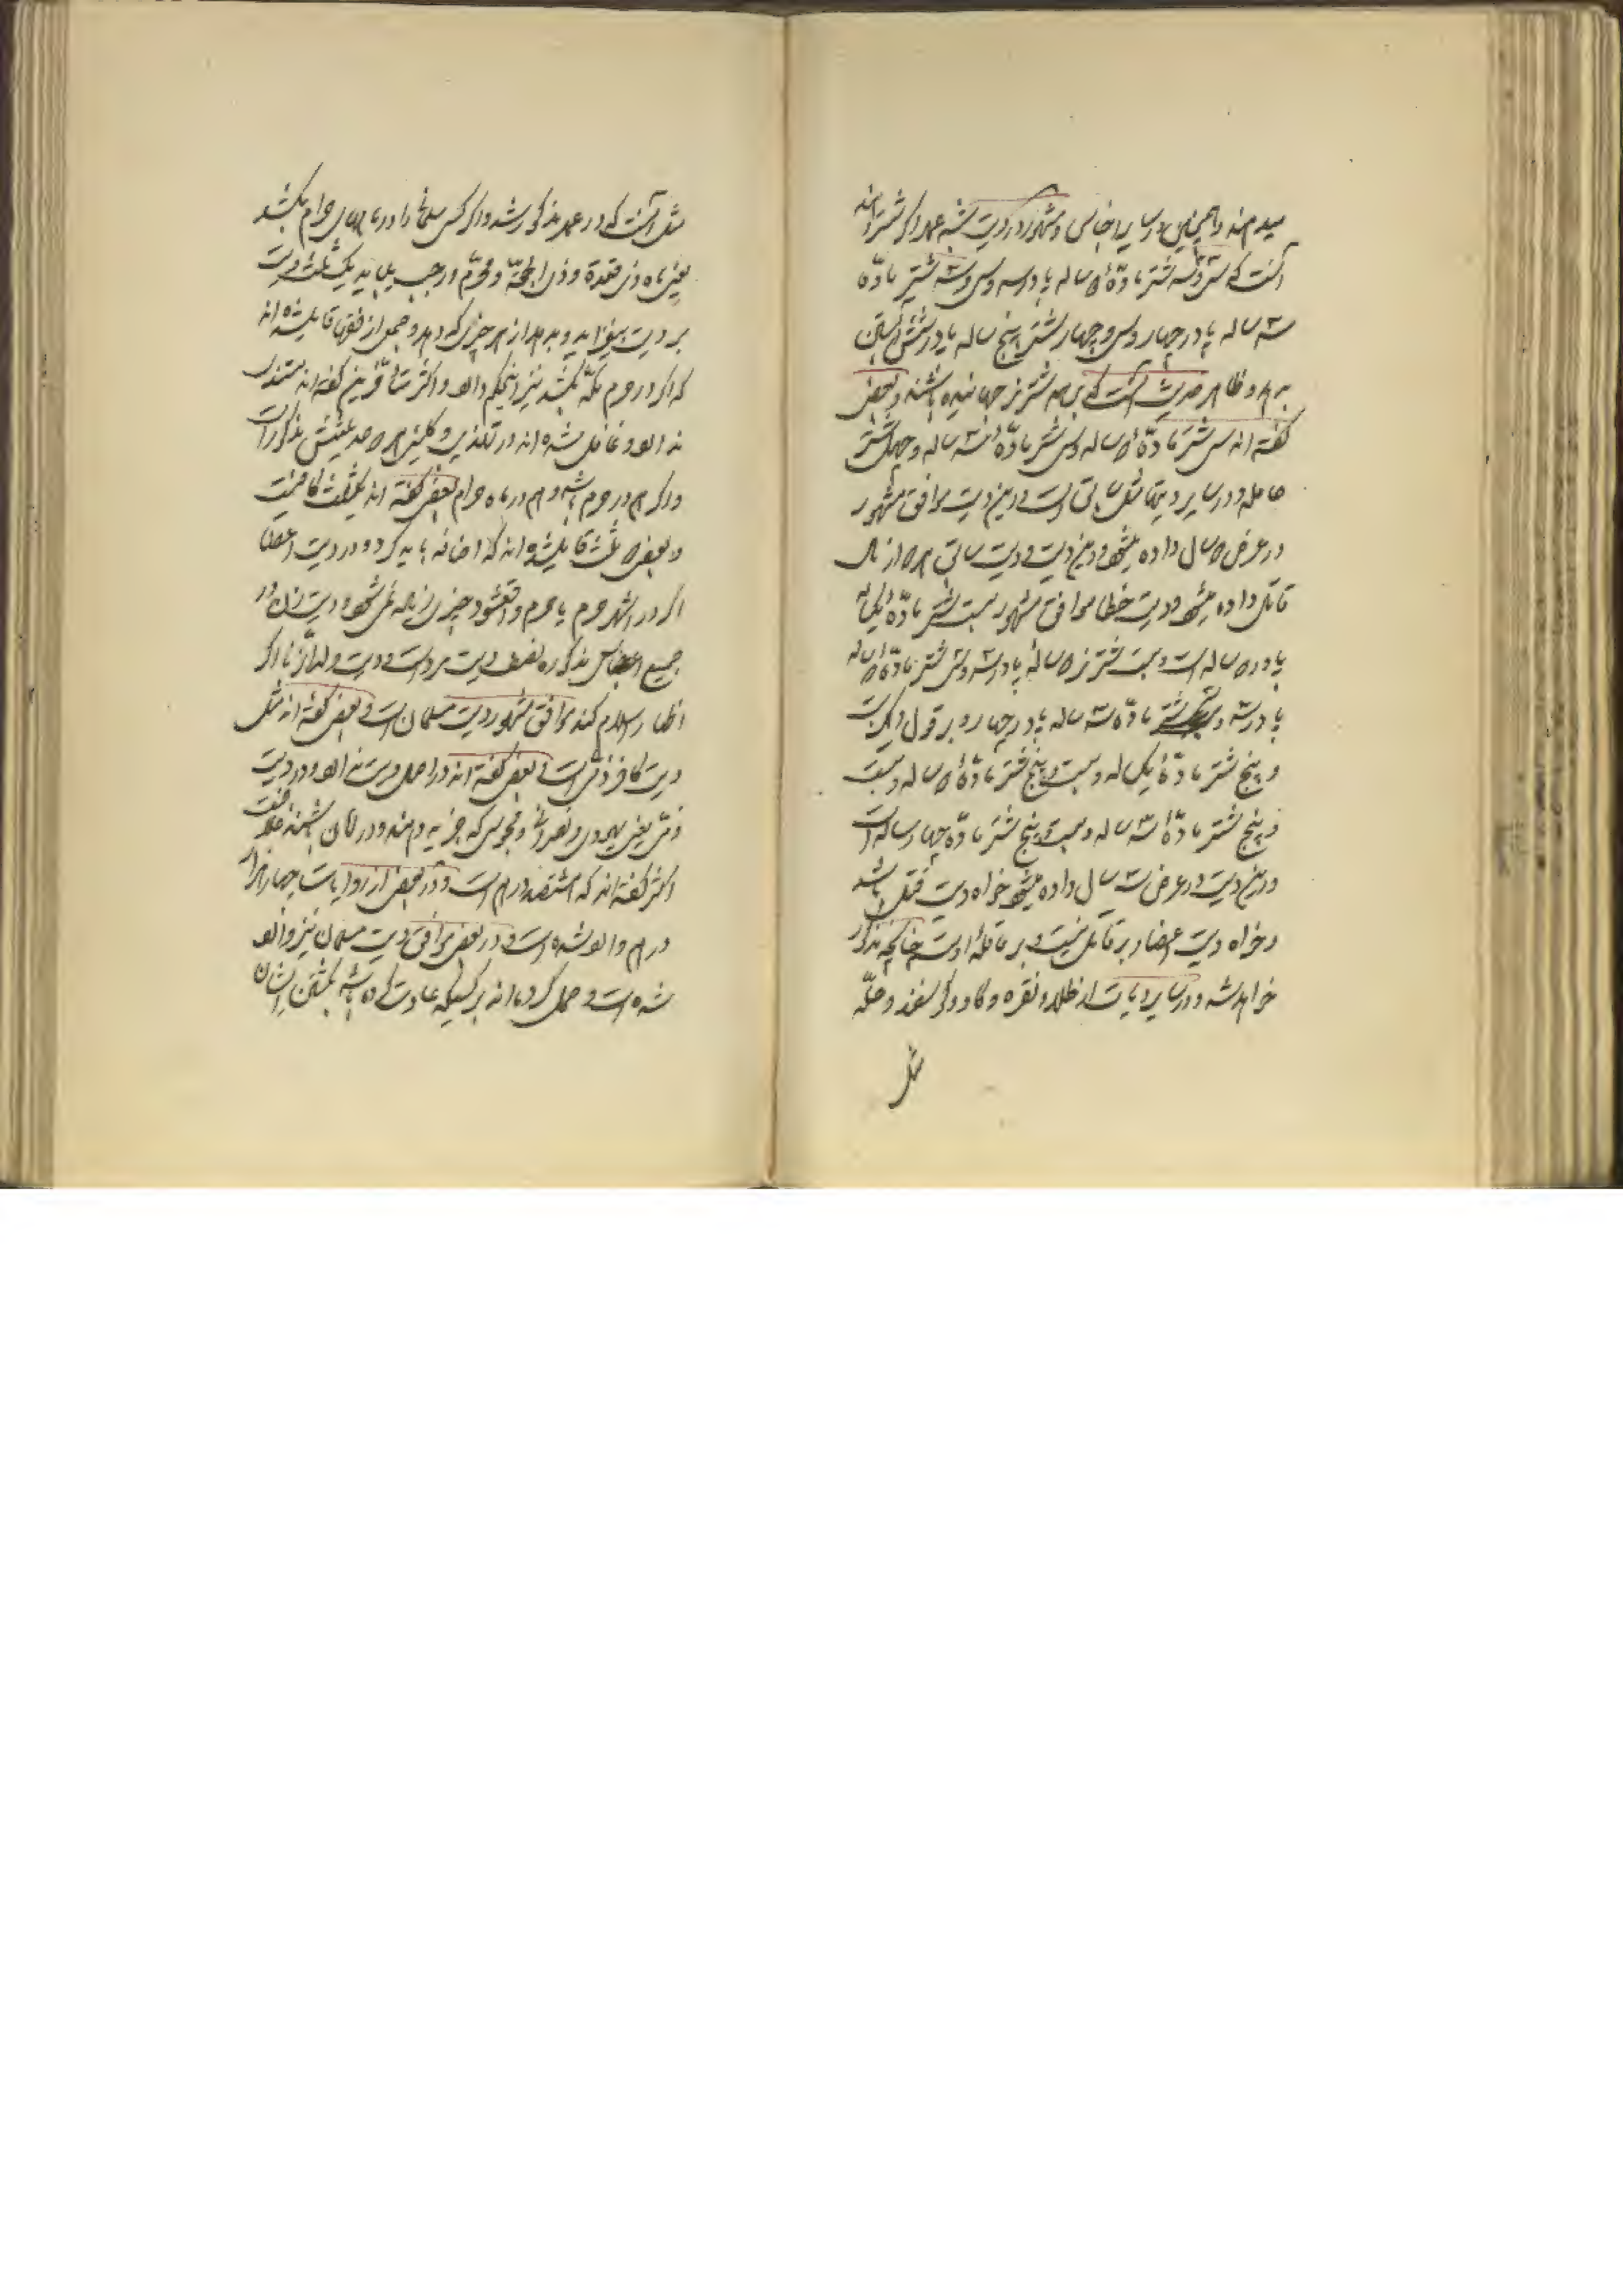 میدهند و همچنین در سایر اجناس و مشهور در دیت شبه عمد اگر شتر دهند
آنست که سی و سه شتر ماده دو ساله پا در سه و سی و سه شتر ماده
سه ساله پا در چهار و سی و چهار شتر پنج ساله پا در شش آبستن
بدهد و ظاهر حدیث آنست که بر همه شتر نر جهانیده باشند و بعضی
گفته اند سی شتر ماده دو ساله و سی شتر ماده سه ساله و چهل شتر
حامله و در سایر دیتها مثل سابق است و این دیت موافق مشهور
در عرض دو سال داده میشود و این دیت و دیت سابق هر دو از مال
قاتل داده میشود و دیت خطا موافق مشهور بیست شتر ماده یکساله
پا در دو ساله است و بیست شتر نر دو ساله پا در سه و سی شتر ماده دو ساله
پا در سه و سی شتر ماده سه ساله پا در چهار و بر قول دیگر بیست
و پنج شتر ماده یک ساله و بیست و پنج شتر ماده دو ساله و بیست
و پنج شتر ماده سه ساله و بیست و پنج شتر ماده چهار ساله است
و این دیت در عرض سه سال داده میشود خواه دیت قتل باشد
و خواه دیت اعضا و بر قاتل نیست و بر عاقله اوست چنانچه مذکور
خواهد شد و در سایر دیات از طلا و نقره و گاو و گوسفند و حله
مثل
مثل آنست که در عمد مذکور شد و اگر کسی مسلمانی را در ماههای حرام بکشد
یعنی ماه ذی قعده و ذی الحجه و محرم و رجب میباید یک ثلث دیت
بر دیت بیفزاید و بدهد از هر چیزی که دهد و جمعی از فقها قایل شده اند
که اگر در حرم مکه بکشد نیز اینحکم دارد و اکثر متأخرین گفته اند مستندی
ندارد و غافل شده اند در تهذیب و کلینی هر دو حدیثش مذکور است
و اگر هم در حرم باشد و هم در ماه حرام بعضی گفته اند یک ثلث کافیست
و بعضی دو ثلث قایل شده اند که اضافه باید کرد و در دیت اعضا
اگر در اشهر حرم یا حرم واقع شود چیزی زیاد نمی شود و دیت زن در
جمیع اجناس مذکوره نصف دیت مرد است و دیت ولد الزنا اگر
اظهار اسلام کند موافق مشهور دیت مسلمان است و بعضی گفته اند مثل
دیت کافر ذمی است و بعضی گفته اند در اصل دیت ندارد و در دیت
ذمی یعنی یهودی و نصرانی و مجوسی که جزیه دهند و در امان باشند خلافست
اکثر گفته اند که هشتصد درهم است و در بعضی از روایات چهار هزار
درهم وارد شده است و در بعضی موافق دیت مسلمان نیز وارد
شده است و حمل کرده اند بر کسیکه عادت کرده باشد بکشتن ایشان